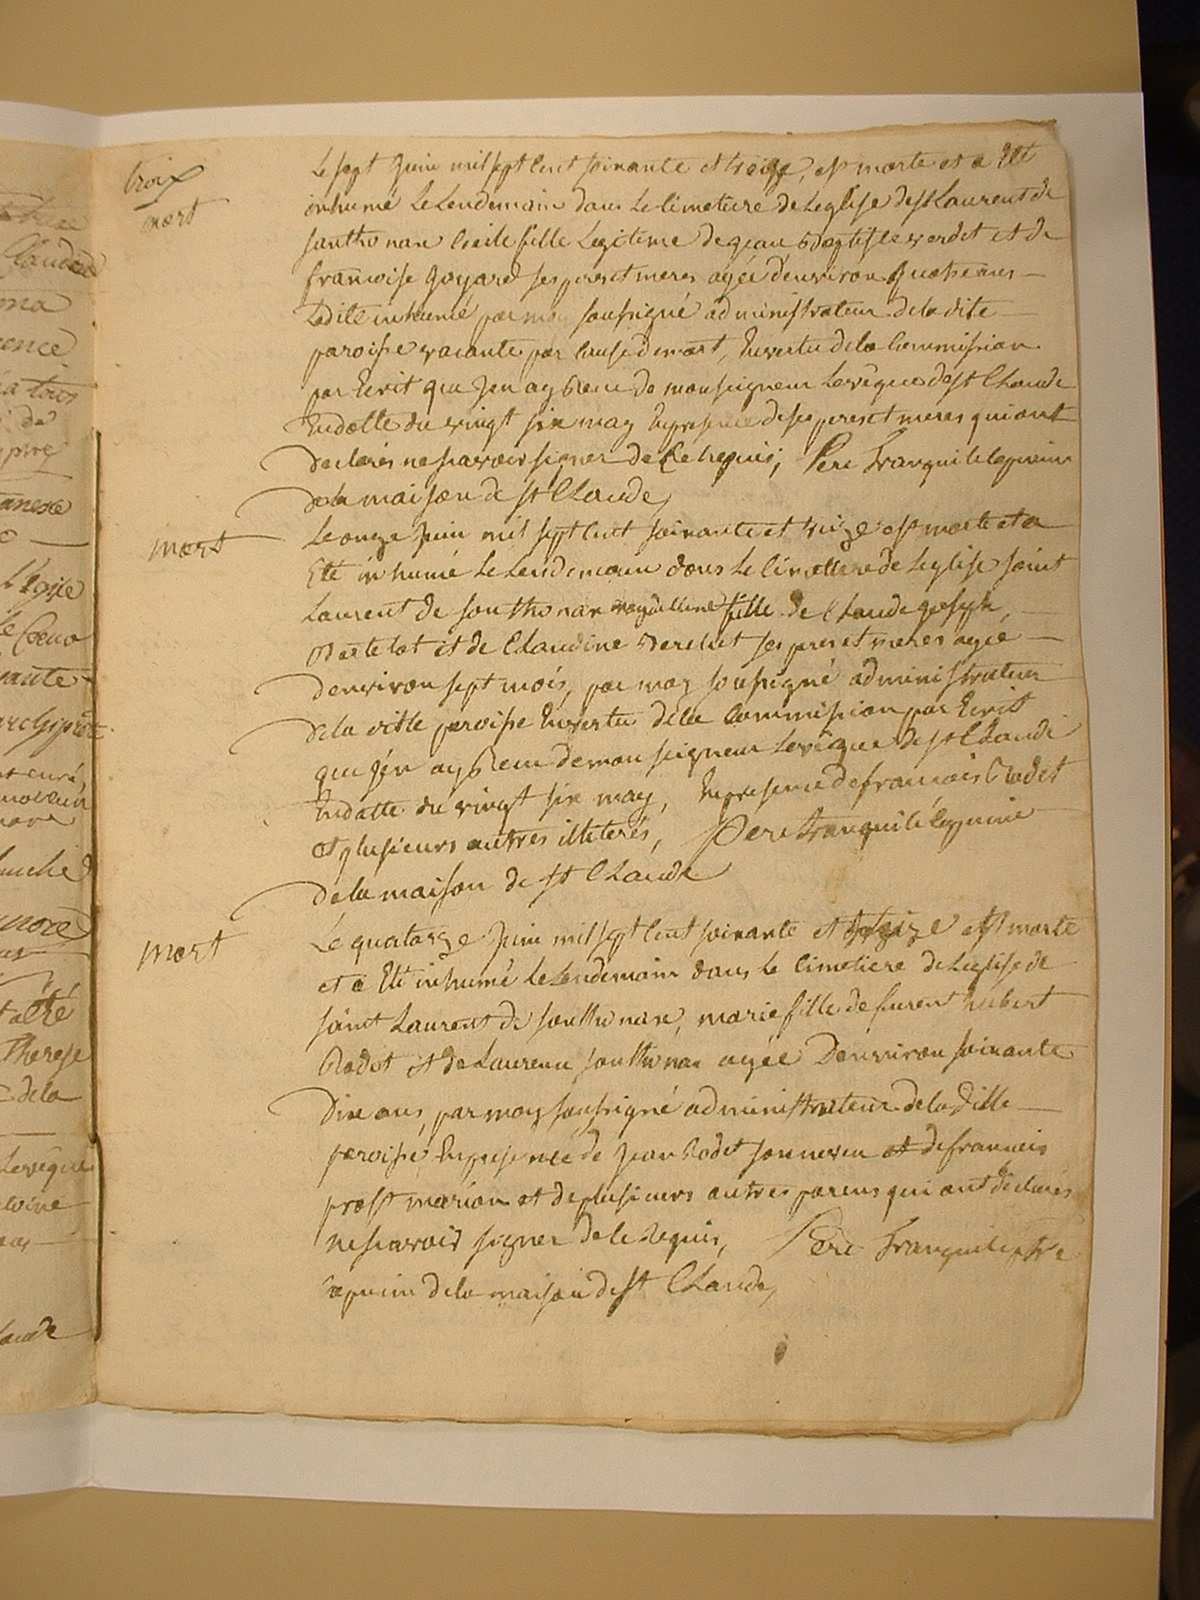 troix
mort
Le sept Juin mil sept Cent soixante et treize, est morte et a Eté
inhumé Le Lendemain dans Le Cimetiere de Leglise de st Laurent de
fille Legitime de jean baptiste verdet et de
francoise goyard ses peres et meres agée d'environ quatre ans
Ladite inhumé par moy soussigné administrateur de ladite
paroisse vacante par Cause de mort, En vertu de la Commission
par Ecrit que Jen ay Receu de monseigneur Levêque de st Claude
En datte du vingt six may En presence de ses peres et meres qui ont
declarés ne scavoir signer de Ce Requis, Pere Tranquile Capucin
de la maison de st Claude,
mort
Le onze Juin mil sept Cent soixante et treize est morte et a
Eté inhumé Le Lendemain dans Le Cimettiere de Leglise saint
Laurent de southonax magdelleine fille de Claude joseph
et de Claudine verchet ses peres et meres agée
d'environ sept mois, par moy soussigné administrateur
de la ditte paroisse En vertu de la Commission par Ecrit
que J'en ay Receu de monseigneur Levêque de st Claude
En datte du vingt six may, En presence de francois Rodet
et plusieurs autres illiterés, Pere tranquile Capucin
de la maison de st Claude
mort
Le quatorze Juin mil sept Cent soixante et treize est morte
et a Eté inhumé le Lendemain dans le Cimetiere de Leglise de
saint Laurent de southonax, marie fille de furent hubert
Rodet et de Laurence southonax agée D'environ soixante
Dix ans, par moy soussigné administrateur de la ditte
paroisse En presence de Jean Rodet son neveu et de francois
prost marion et de plusieurs autres parens qui ont déclarés
ne scavoir signer de Ce Requis, Pere Tranquile ptre
Capucin de la maison de st Claude,